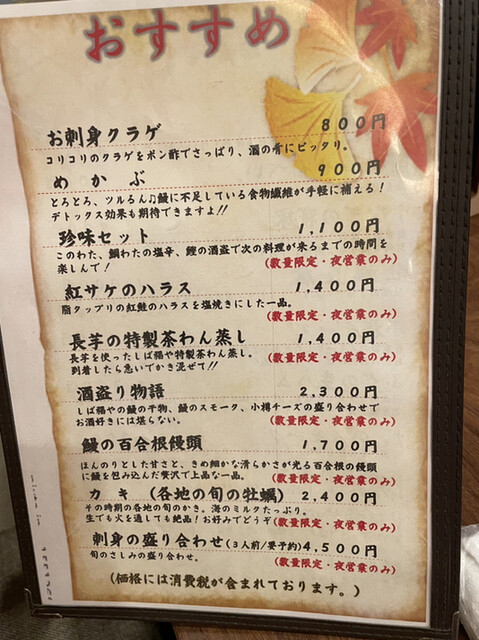 おすすめ
お刺身クラゲ 800円
コリコリのクラゲをポン酢でさっぱり、酒の肴にピッタリ。
めかぶ 900円
とろとろ、ツルるん♫鰻に不足している食物繊維が手軽に補える！
デトックス効果も期待できますよ!!
珍味セット 1,100円
このわた、鯛わたの塩辛、鰹の酒盗で次の料理が来るまでの時間を
楽しんで！ (数量限定・夜営業のみ)
紅サケのハラス 1,400円
脂タップリの紅鮭のハラスを塩焼きにした一品。
(数量限定・夜営業のみ)
長芋の特製茶わん蒸し 1,400円
長芋を使ったしば福や特製茶わん蒸し。
到着したら急いでかき混ぜて!! (数量限定・夜営業のみ)
酒盗り物語 2,300円
しば福やの鰻の干物、鰻のスモータ、小樽チーズの盛り合わせで
お酒好きには堪らない。 (数量限定・夜営業のみ)
鰻の百合根饅頭 1,700円
ほんのりとした甘さと、きめ細かな滑らかさが光る百合根の饅頭
に鰻を包み込んだ贅沢で上品な一品。 (数量限定・夜営業のみ)
カキ (各地の旬の牡蠣) 2,400円
その時期の各地の旬のかき。海のミルクたっぷり。
生でも火を通しても絶品！お好みでどうぞ (数量限定・夜営業のみ)
刺身の盛り合わせ(3人前/要予約) 4,500円
旬のさしみの盛り合わせ。 (数量限定・夜営業のみ)
(価格には消費税が含まれております。)